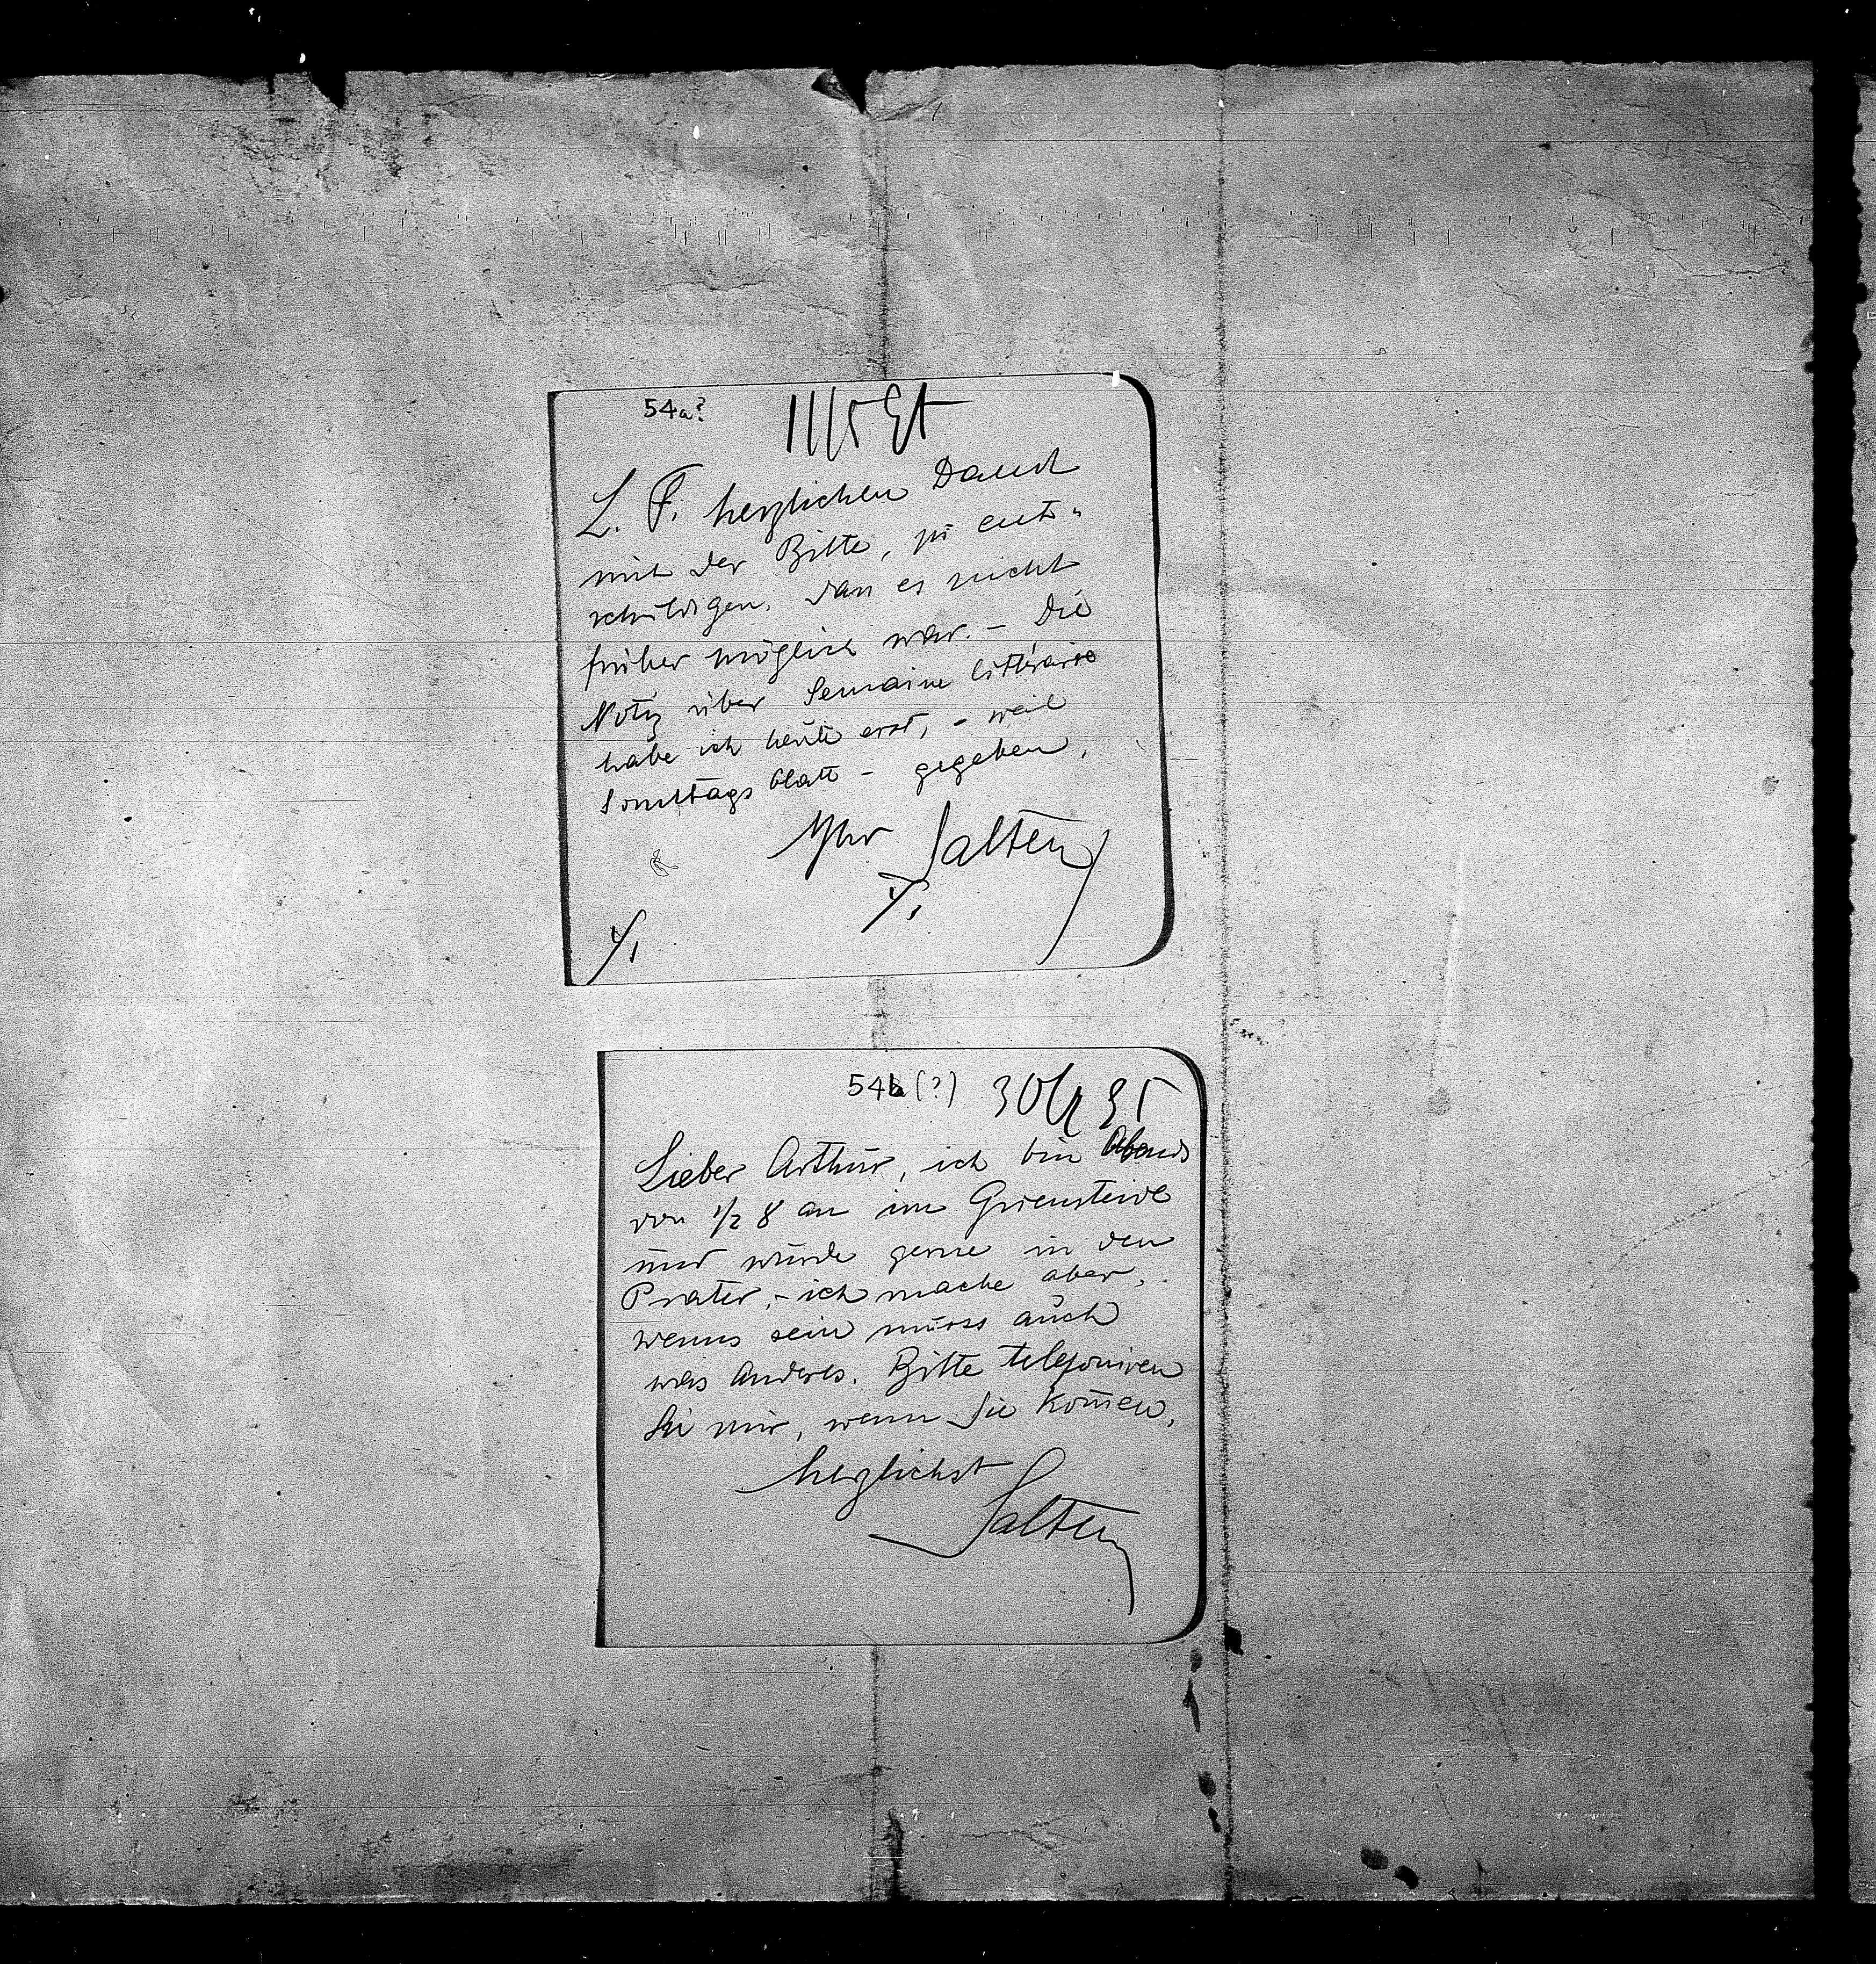 54a?
11/5 95
L. F. herzlichen Dank
mit der Bitte, zu ent-
schuldigen, dass es nicht
früher möglich war. – Die
Notiz über Semaine littéraire
habe ich heute erst, – weil
Sonntagsblatt – gegeben.
Ihr Salten
54b (?) 30/5 95
Lieber Arthur, ich bin Abends
von 1/2 8 an im Griensteidl
und würde gerne in den
Prater, – ich mache aber,
wenns sein muss auch
was Anderes. Bitte telefoniren
Sie mir, wenn Sie kom̄en.
herzlichst
Salten